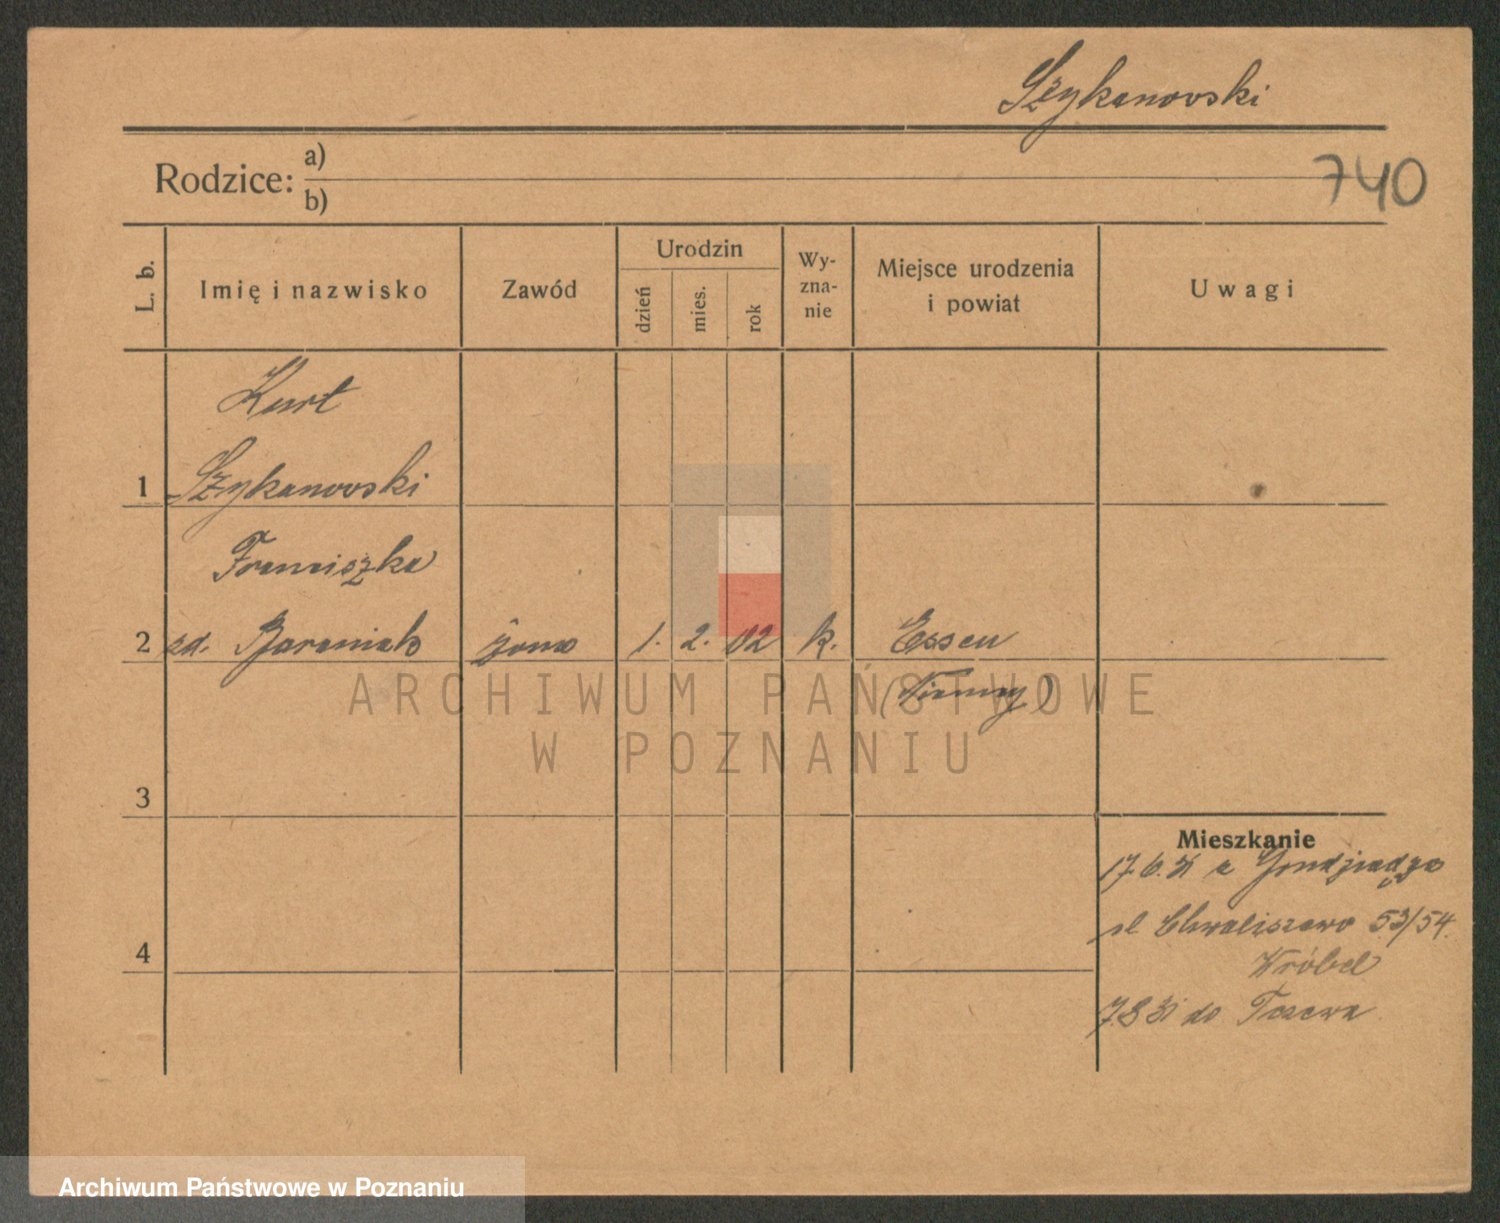 Szykanovski
Rodzice: a)
b)
740
L. b.
Imię i nazwisko
Zawód
Urodzin
dzień
mies.
rok
Wy-
zna-
nie
Miejsce urodzenia
i powiat
Uwagi
Kurt
1 Szykanovski
Franciszka
2 zd. Baraniak żona 1. 2. 02 k. Essen
(Niemcy)
ARCHIWUM PAŃSTWOWE
W POZNANIU
3
Mieszkanie
17.6.31 z Grudziądza
ul Chwaliszewo 53/54.
4
Wróbel
7.8 31 do Tczewa
Archiwum Państwowe w Poznaniu